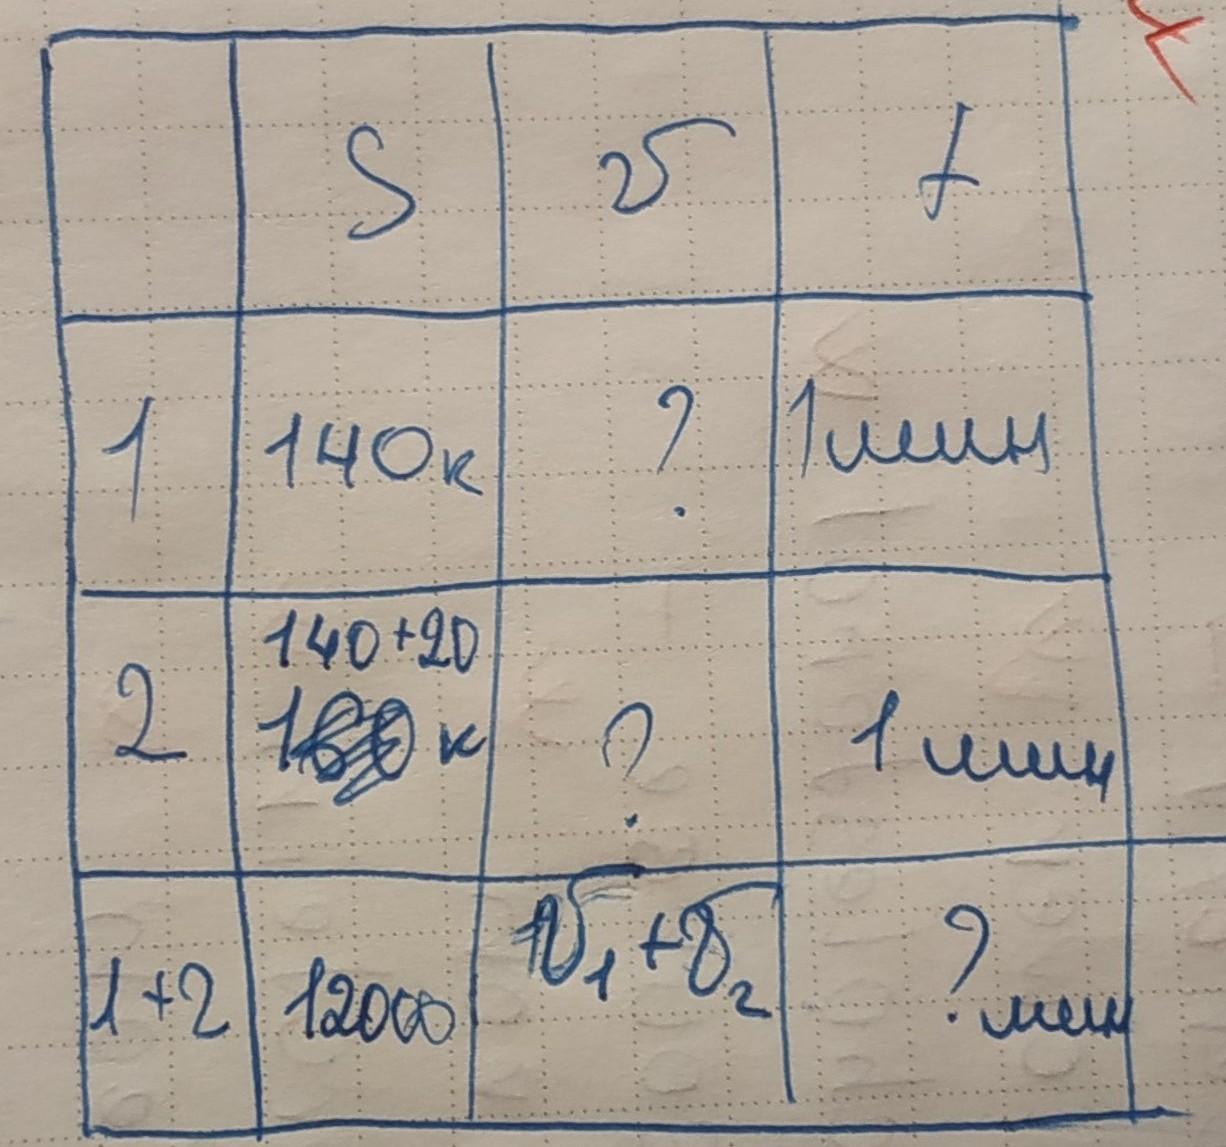 S v t
1 140к ? 1мин
140+20
2 к ? 1 мин
1+2 12000 v₁+v₂ ? мин